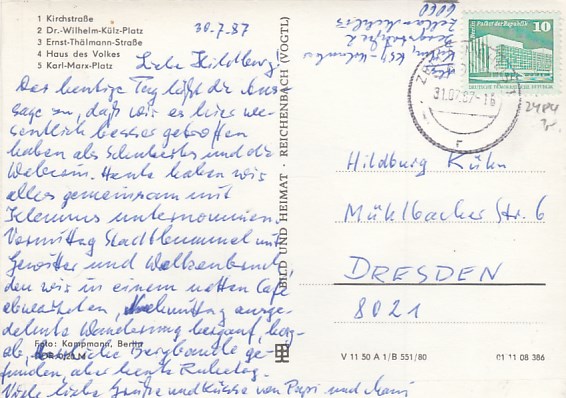 1 Kirchstraße
2 Dr.-Wilhelm-Külz-Platz
3 Ernst-Thälmann-Straße
4 Haus des Volkes
5 Karl-Marx-Platz
30.7.87
Liebe Hildburg!
Der heutige Tag läßt die Aus-
sage zu, daß wir es hier we-
sentlich besser getroffen
haben als Schuberts und die
Heute haben wir
alles gemeinsam mit
Klemms unternommen.
Vormittag Stadtbummel mit
Gewitter und Wolkenbruch,
den wir in einem netten Café
abwarteten, Nachmittag ausge-
dehnte Wanderung bergauf, berg-
ab, Bergbaude ge-
funden, aber heute Ruhetag.
Viele liebe Grüße und Küsse von Papi und Mami
Foto: Kampmann, Berlin
BILD UND HEIMAT · REICHENBACH (VOGTL)
6060
Zella-Mehlis
Palast der Republik
10
DEUTSCHE DEMOKRATISCHE REPUBLIK
31.07.87-16
r
2484
Hildburg Kühn
Mühlbacher Str. 6
DRESDEN
8021
V 11 50 A 1/B 551/80
01 11 08 386